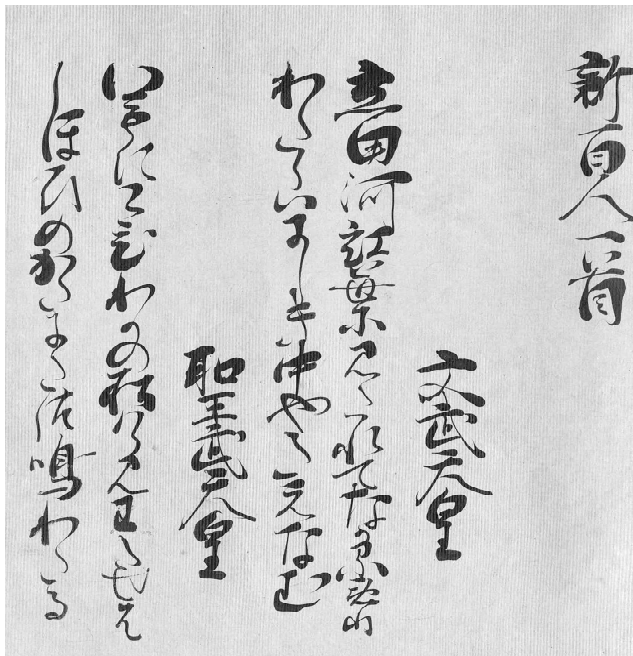 新百人一首
文武天皇
立田河紅葉みたれてなかるめり
わたらはにしき中やたえなむ
聖武天皇
いもにこひわかの松はらみわたせは
しほひのかたにたつ鳴わたる